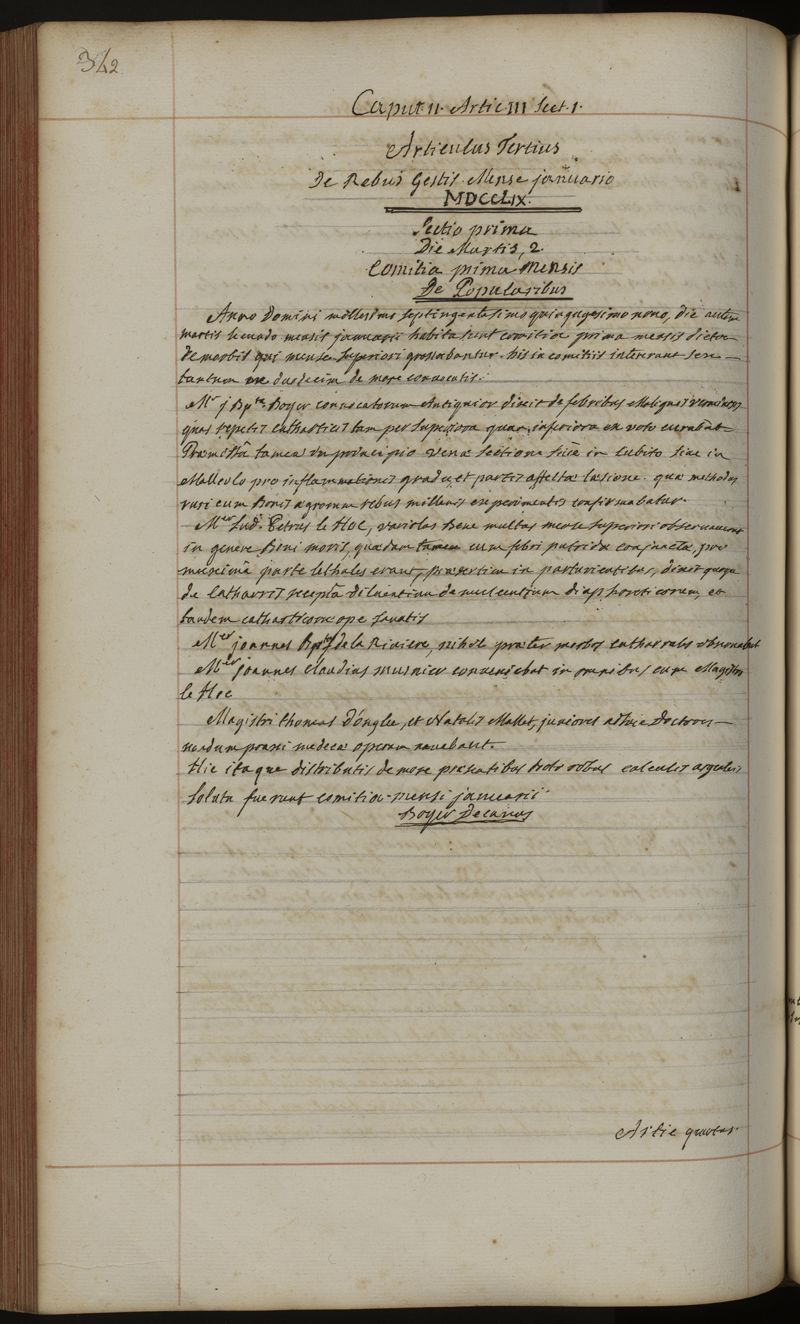 342
Caput II. Artic III Sect. I.
Articulus Tertius
De Rebus Gestis Mense januario
MDCCLIX.
Sectio prima
Die Martis, 2.
Comitia prima mensis
De Popularibus
Anno Domini millesimo septingentesimo quinquagesimo nono, die autem
martis secundo mensis januarii habita sunt comitia prima mensis dicta
de morbis qui mense superiori grassabantur. his in comitiis interérant sex
tantum ex duodecim de more convocatis.
Mr j Bpte. Boyer convocatorum Antiquior dixit de febribus Malignis
quas repetitis catharticis tam per superiora quam inferiora ex voto curabat
Præmissâ tamen in principio venæ sectione sive in cubito sive in
Malleolo pro inflammationis gradu et partis affectæ læsione. quæ methodus
cum Bonis ægrorum rebus millenis experimentis confirmabatur.
Mer Lud. Petrus le Hoc, variolas Bene multas mense superiori observaverat
in genere Boni moris, quædam tamen cum febri putrida conjunctæ, pro
maxima parte lethales erant, præsertim in parturientibus, dixit quoque
de catharris diluentium demulcentium diaphoreticorum, et
tandem catharticorum ope sanatis
Mer joannes Bptes de la Riviere, nihil præter morbos catharrales observabat
Mer joannes Claudius Musnier conveniebat in omnibus cum Magistro
le Hoc
Magistri thomas D'onglee, et Natalis Mallet, juniores adhuc Doctores
nondum praxi medicæ operam navabant.
Hic itaque distributis de more præsentibus calculis argenteis
soluta fuerunt comitia mensis januarii
Boyer Decanus
Artic quartus.